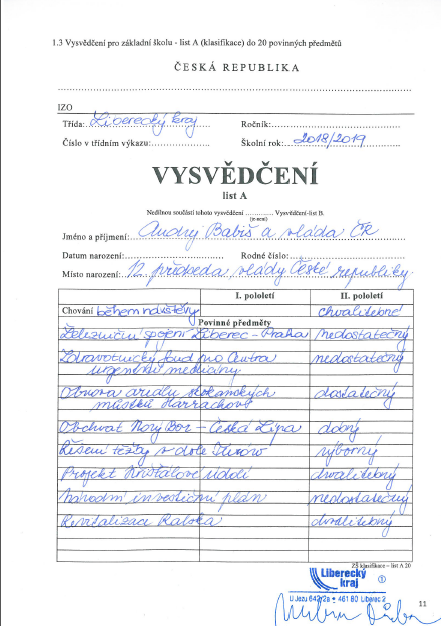 1.3 Vysvědčení pro základní školu - list A (klasifikace) do 20 povinných předmětů
ČESKÁ REPUBLIKA
IZO
Třída: Liberecký kraj Ročník:
Číslo v třídním výkazu: Školní rok: 2018/2019
VYSVĚDČENÍ
list A
Nedílnou součástí tohoto vysvědčení ............ Vysvědčení-list B.
(je-není)
Jméno a příjmení: Andrej Babiš a vláda ČR
Datum narození: Rodné číslo:
Místo narození: 12. předseda vlády České republiky
I. pololetí II. pololetí
Chování během návštěvy chvalitebné
Povinné předměty
Železniční spojení Liberec - Praha nedostatečný
Zdravotnický fond pro Centra nedostatečný
urgentní medicíny
Obnova areálu skokanských dostatečný
můstků Harrachov
Obchvat Nový Bor - Česká Lípa dobrý
Řešení těžby v dole Turów výborný
Projekt Křišťálové údolí chvalitebný
Národní investiční plán nedostatečný
Revitalizace Ralska chvalitebný
ZŠ klasifikace - list A 20
Liberecký
kraj
U Jezu 642/2a • 461 80 Liberec 2
11